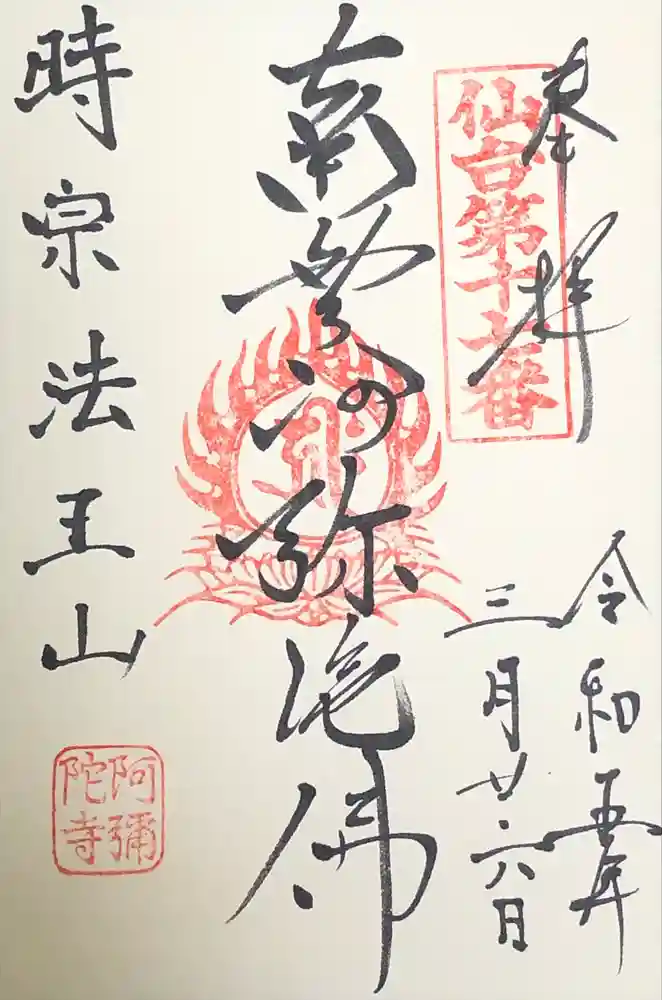 奉拝
仙台第十七番
令和五年
三月廿六日
南無阿弥陀佛
時宗法王山
阿彌陀寺